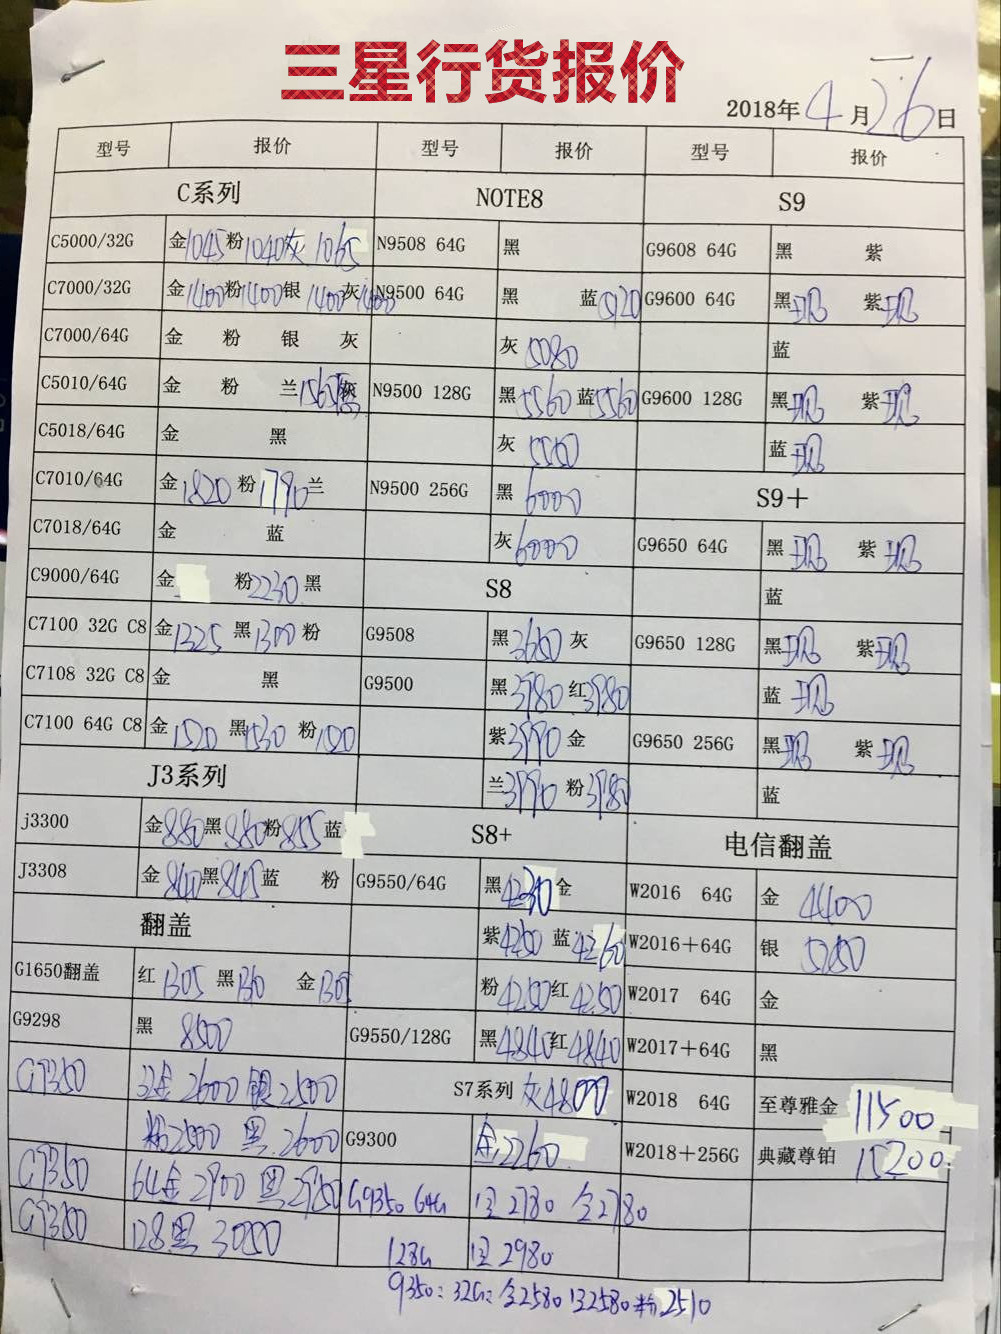 三星行货报价
2018年4月26日
型号 报价 型号 报价 型号 报价
C系列 NOTE8 S9
C5000/32G 金1045粉1040灰1065 N9508 64G 黑 G9608 64G 黑 紫
C7000/32G 金1400粉1400银1400灰1400 N9500 64G 黑 蓝 G9600 64G 黑现 紫现
C7000/64G 金 粉 银 灰 灰5080 蓝
C5010/64G 金 粉 兰1565 N9500 128G 黑5560蓝5560 G9600 128G 黑现 紫现
C5018/64G 金 黑 灰5550 蓝现
C7010/64G 金1820粉1790兰 N9500 256G 黑6000 S9+
C7018/64G 金 蓝 灰6000 G9650 64G 黑现 紫现
C9000/64G 金 粉2230黑 S8 蓝
C7100 32G C8 金1325黑1300粉 G9508 黑3650灰 G9650 128G 黑现 紫现
C7108 32G C8 金 黑 G9500 黑3980红3980 蓝现
C7100 64G C8 金1520黑1530粉 紫3990金 G9650 256G 黑现 紫现
J3系列 兰3990粉3980 蓝
j3300 金880黑880粉855蓝 S8+ 电信翻盖
J3308 金840黑845蓝 粉 G9550/64G 黑4230金 W2016 64G 金4400
翻盖 紫4250蓝4260 W2016+64G 银
G1650翻盖 红1305黑 金1305 粉4250红4250 W2017 64G 金
G9298 黑8500 G9550/128G 黑4840红4840 W2017+64G 黑
32金2600银2500 S7系列 灰4800 W2018 64G 至尊雅金11500
粉2500黑2600 G9300 金2260 W2018+256G 典藏尊铂15200
64金2900黑2980 G9350 64G 2780金2780
128黑3050 128G 2980
9350:32G:金2580 2580粉2510